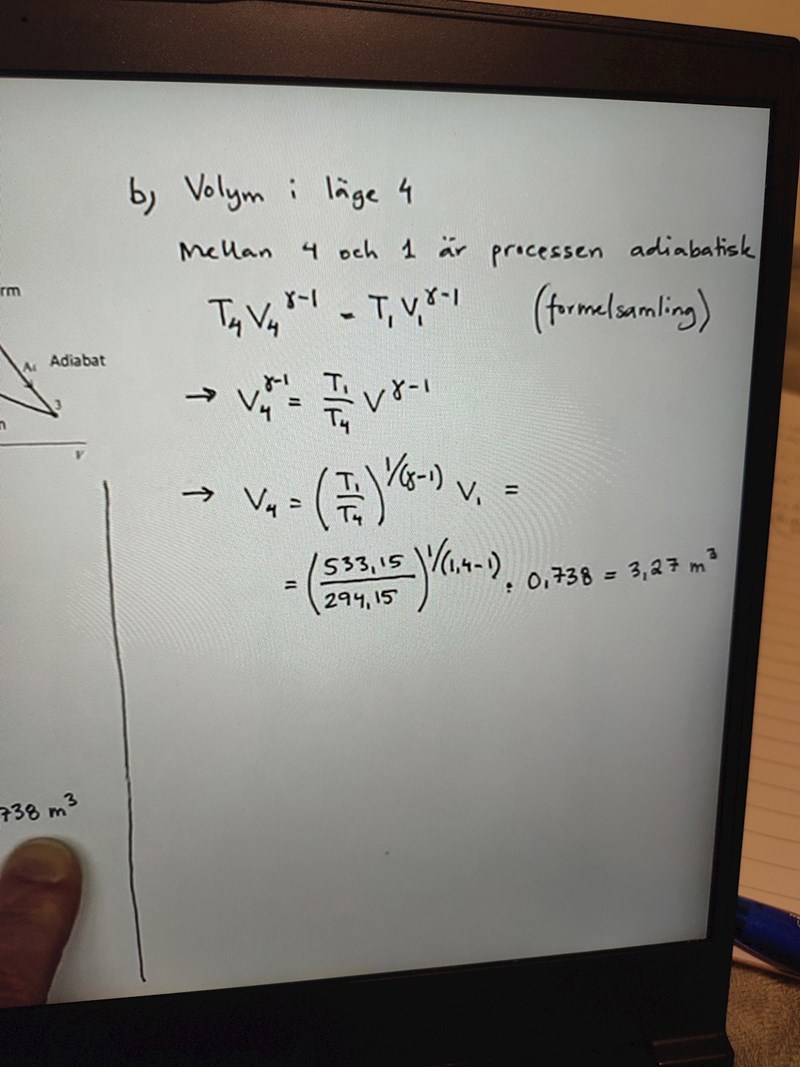 b) Volym i läge 4
Mellan 4 och 1 är processen adiabatisk
rm
T₄V₄^γ-1 = T₁V₁^γ-1 (formelsamling)
Adiabat
→ V₄^γ-1 = T₁/T₄ V^γ-1
3
n
V
→ V₄ = (T₁/T₄)^1/(γ-1) V₁ =
= (533,15/294,15)^1/(1,4-1) · 0,738 = 3,27 m³
738 m³